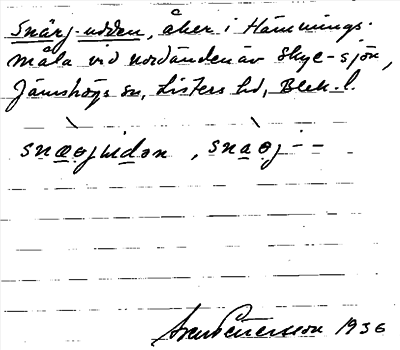 Snärj-udden, åker i Hämmings-
måla vid nordänden av Skye-sjön,
Jämshögs sn, Listers hd, Blek. l.
snæqjudən, snaqj--
Sven Petersson 1936